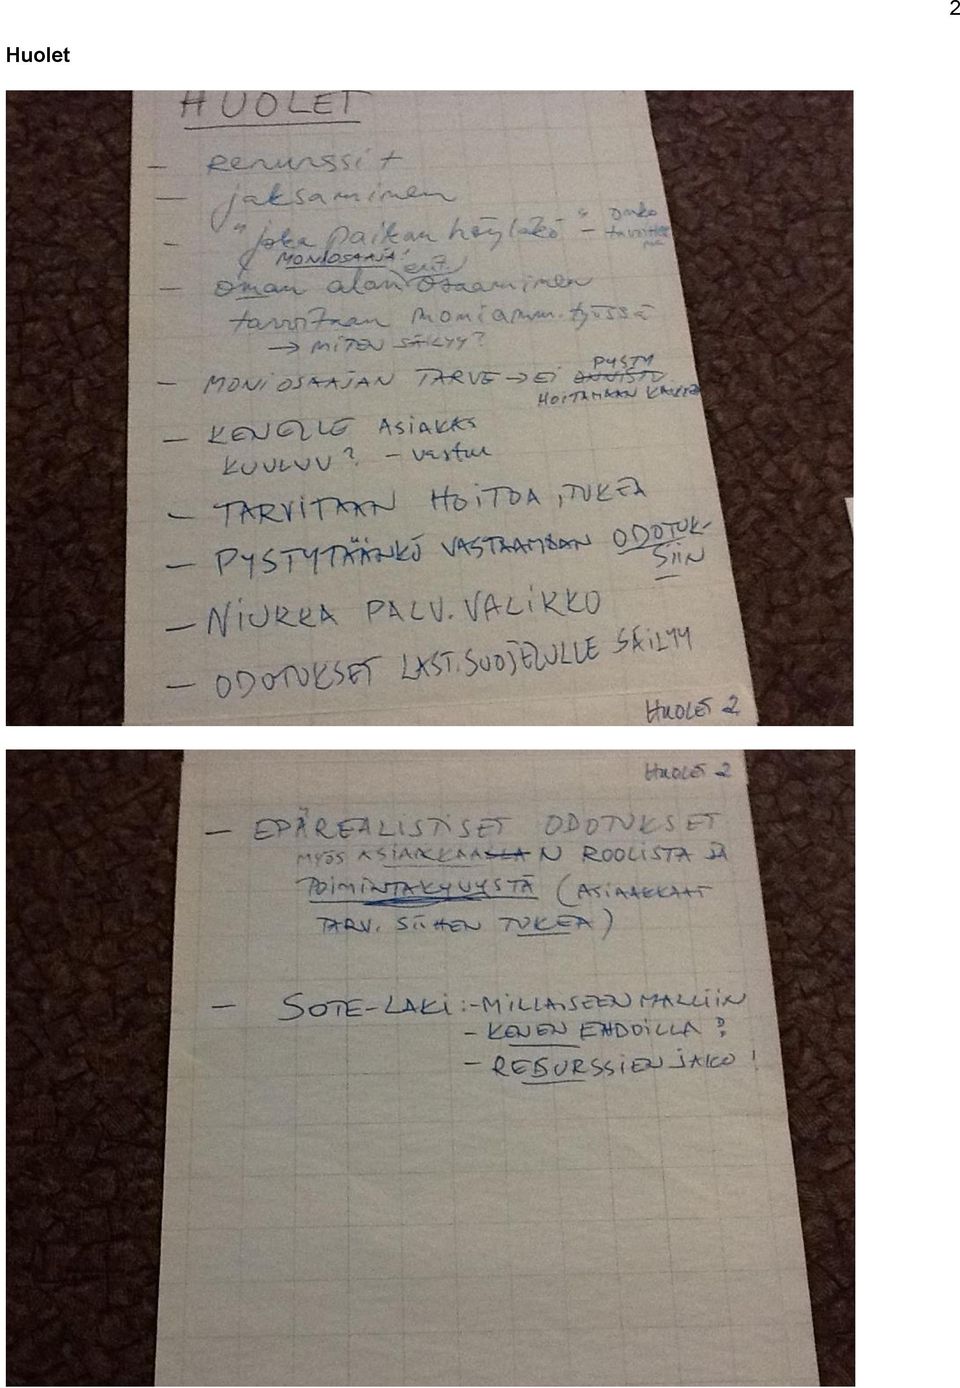 2
Huolet
HUOLET
- Resurssit
- jaksaminen
- "joka paikan höyläkö" - onko
tavoittee
na
MONIOSAAJA!
- oman alan erit. osaaminen
tarvitaan moniamm. työssä
→ MITEN SÄILYY?
- MONIOSAAJAN TARVE → EI ONNISTU PYSTY
HOITAMAAN KAIKKEA
- KENELLE ASIAKAS
KUULUU? - vastuu
- TARVITAAN HOITOA, TUKEA
- PYSTYTÄÄNKÖ VASTAAMAAN ODOTUK-
SIIN
- NIUKKA PALV. VALIKKO
- ODOTUKSET LAST.SUOJELULLE SÄILYY
HUOLET 2
HUOLET 2
- EPÄREALISTISET ODOTUKSET
MYÖS ASIAKKAALLA N ROOLISTA JA
TOIMINTAKYVYSTÄ (ASIAKKAAT
TARV. SIIHEN TUKEA)
- SOTE-LAKI: - MILLAISEEN MALLIIN
- KENEN EHDOILLA?
- RESURSSIEN JAKO!